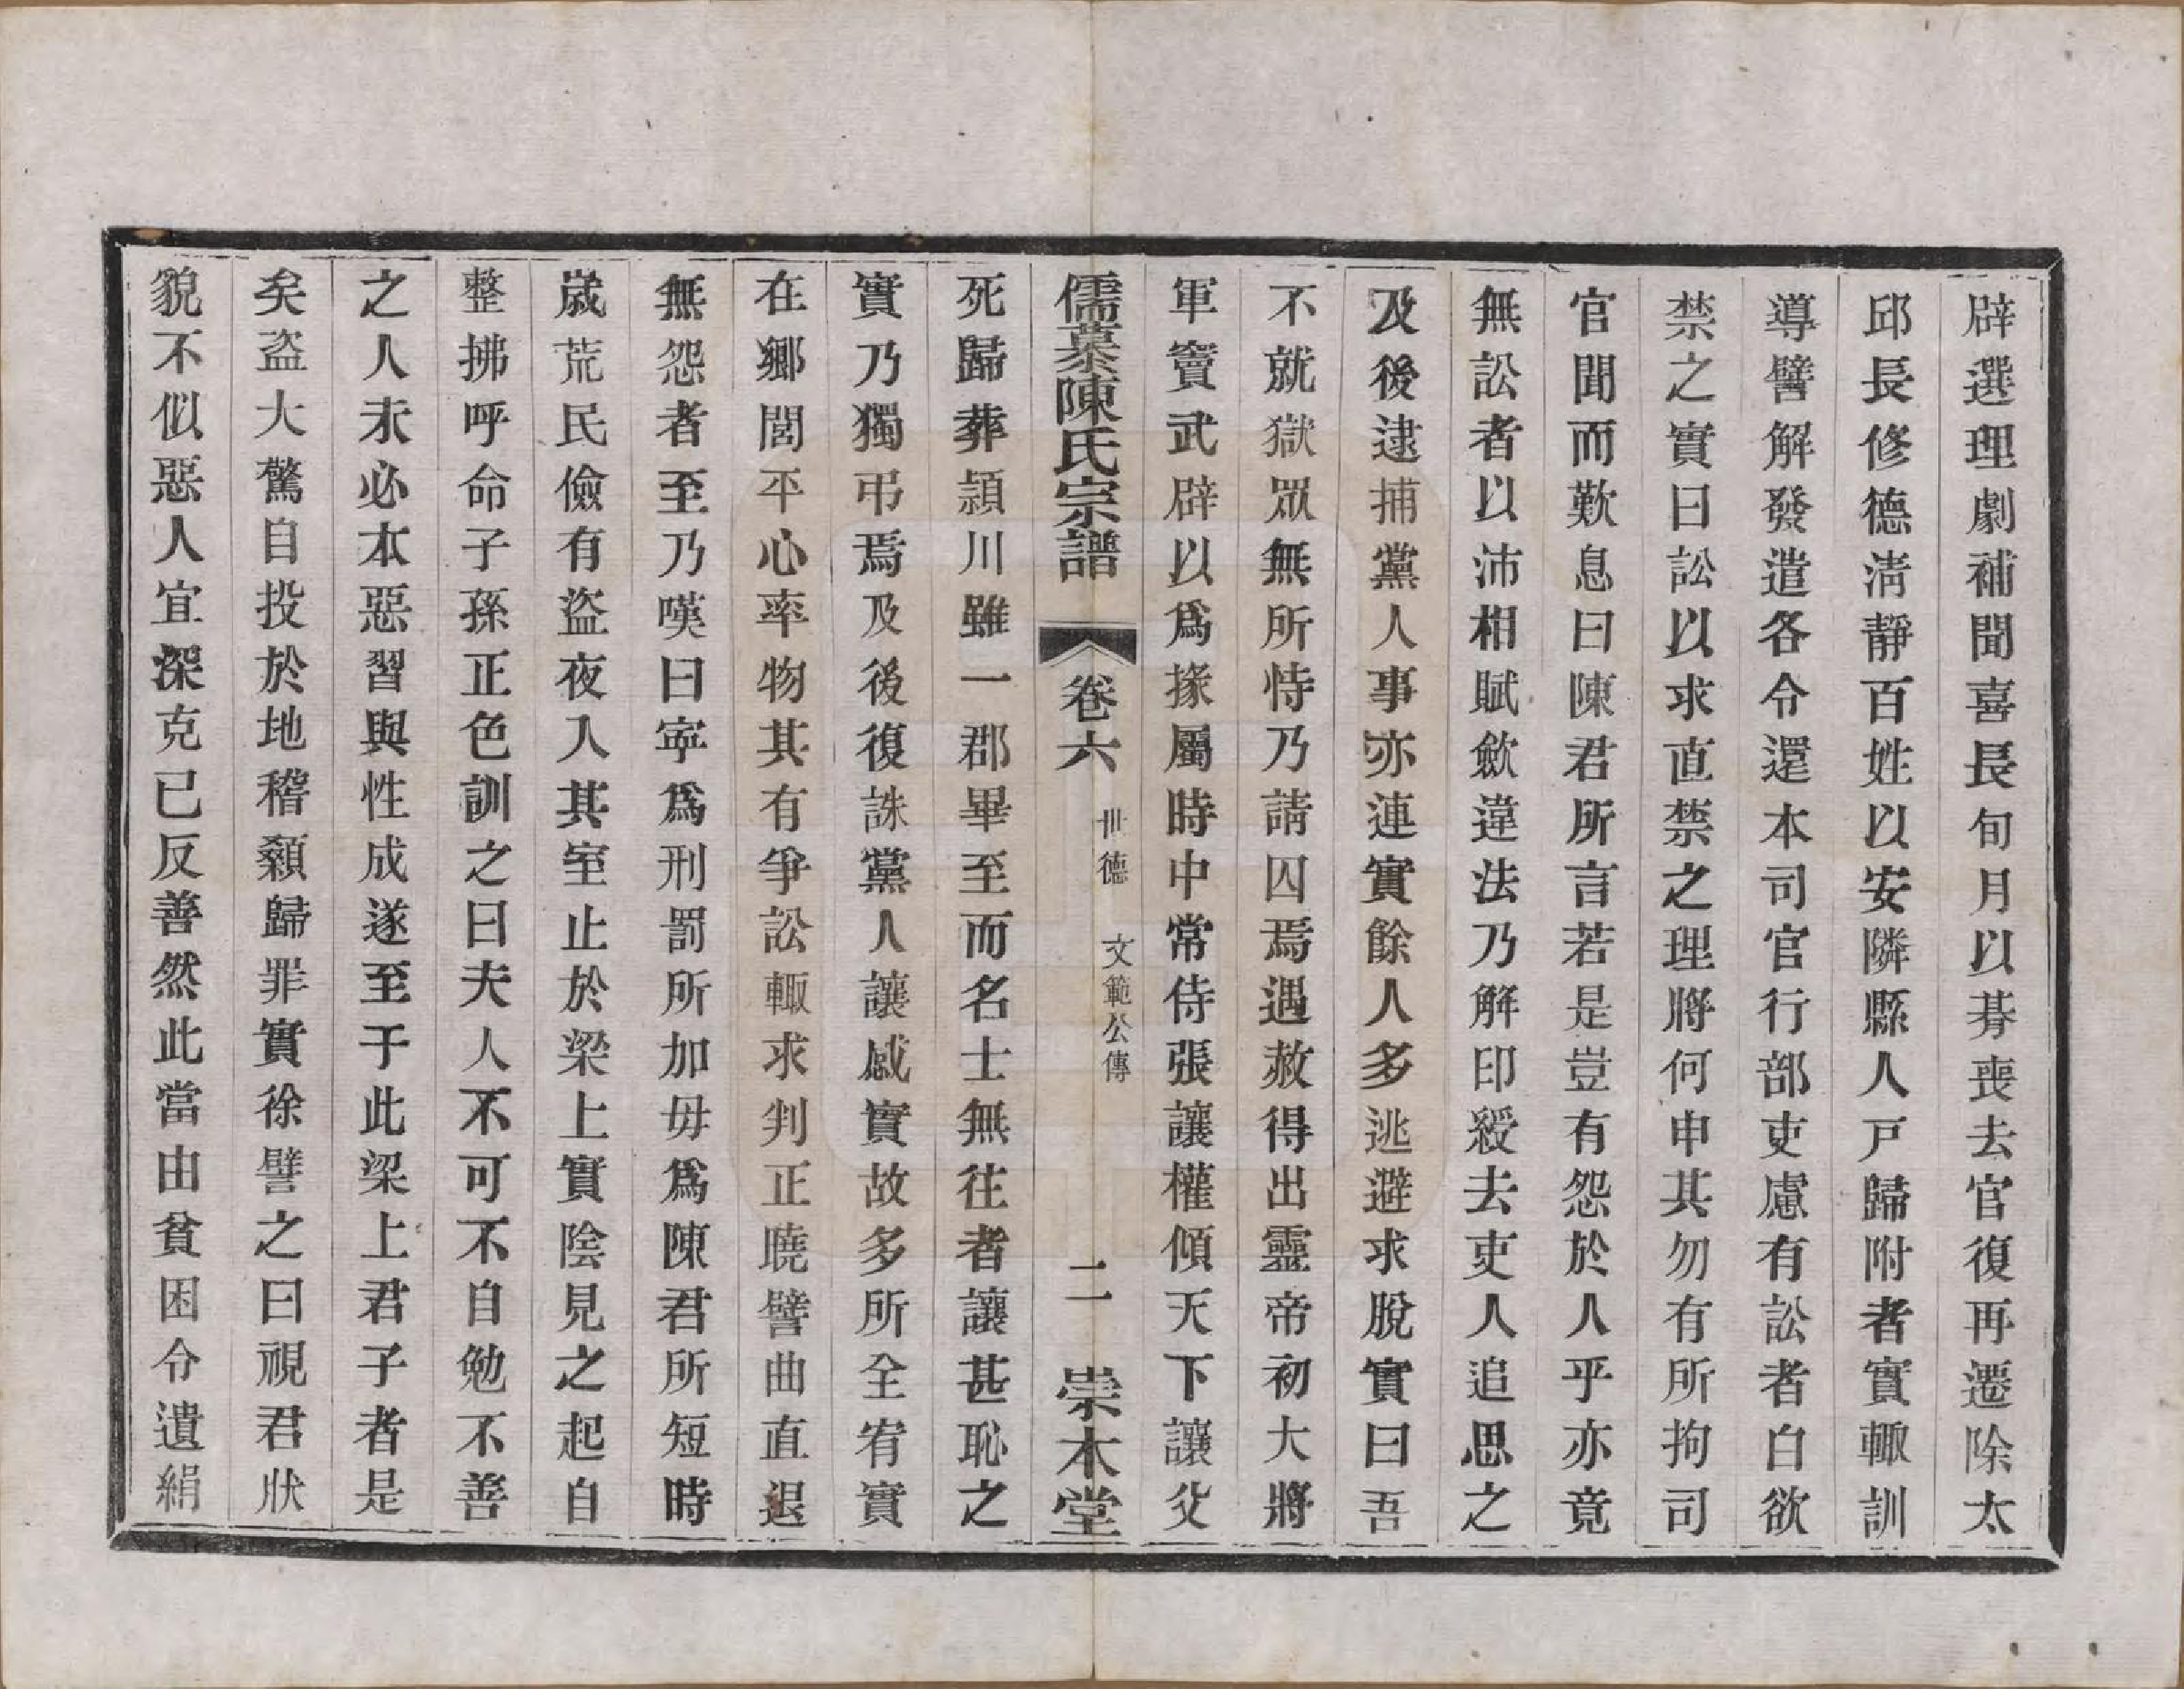 辟選理劇補聞喜長旬月以朞喪去官復再遷除太
邱長修德淸靜百姓以安隣縣人戸歸附者實輙訓
導譬解發遣各令還本司官行部吏慮有訟者白欲
禁之實曰訟以求直禁之理將何申其勿有所拘司
官聞而歎息曰陳君所言若是豈有怨於人乎亦竟
無訟者以沛相賦斂違法乃解印綬去吏人追思之
及後逮捕黨人事亦連實餘人多逃避求脫實曰吾
不就獄眾無所恃乃請囚焉遇赦得出靈帝初大將
軍竇武辟以爲掾屬時中常侍張讓權傾天下讓父
儒慕陳氏宗譜 卷六 世德 文範公傳 二 崇本堂
死歸葬潁川雖一郡畢至而名士無往者讓甚恥之
實乃獨弔焉及後復誅黨人讓感實故多所全宥實
在鄉閭平心率物其有爭訟輙求判正曉譬曲直退
無怨者至乃嘆曰寧爲刑罰所加毋爲陳君所短時
歲荒民儉有盜夜入其室止於梁上實陰見之起自
整拂呼命子孫正色訓之曰夫人不可不自勉不善
之人未必本惡習與性成遂至于此梁上君子者是
矣盜大驚自投於地稽顙歸罪實徐譬之曰視君狀
貌不似惡人宜深克已反善然此當由貧困令遺絹